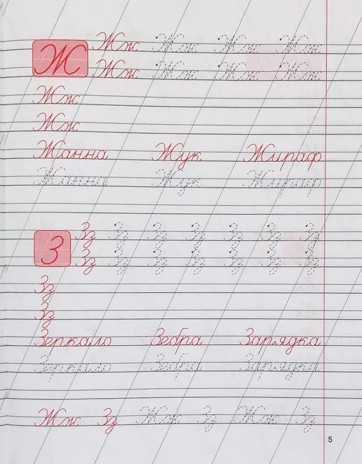 Ж Жж Жж Жж Жж
Жж Жж Жж Жж
Жж
Жж
Жанна Жук Жираф
Жанна Жук Жираф
З Зз Зз Зз Зз Зз Зз Зз
Зз Зз Зз Зз Зз Зз Зз
Зз
Зз
Зеркало Зебра Зарядка
Зеркало Зебра Зарядка
Жж Зз Жж Зз Жж Зз
5